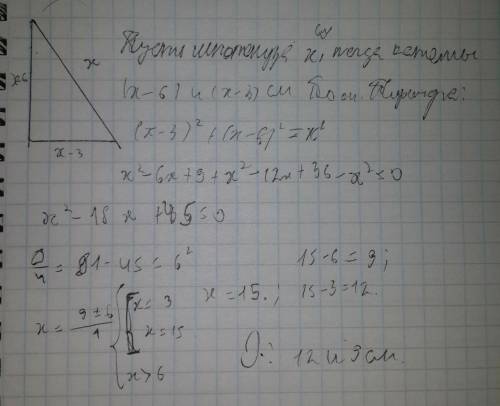 Пусть гипотенуза x см, тогда катеты
(x-6) и (x-3) см По т. Пифагора:
x-6
x
x-3
(x-3)² + (x-6)² = x²
x² - 6x + 9 + x² - 12x + 36 - x² = 0
x² - 18x + 45 = 0
D/4 = 81 - 45 = 6²
x = (9 ± 6)/1
x = 3
x = 15
x > 6
x = 15.;
15 - 6 = 9;
15 - 3 = 12.
О.: 12 и 9 см.